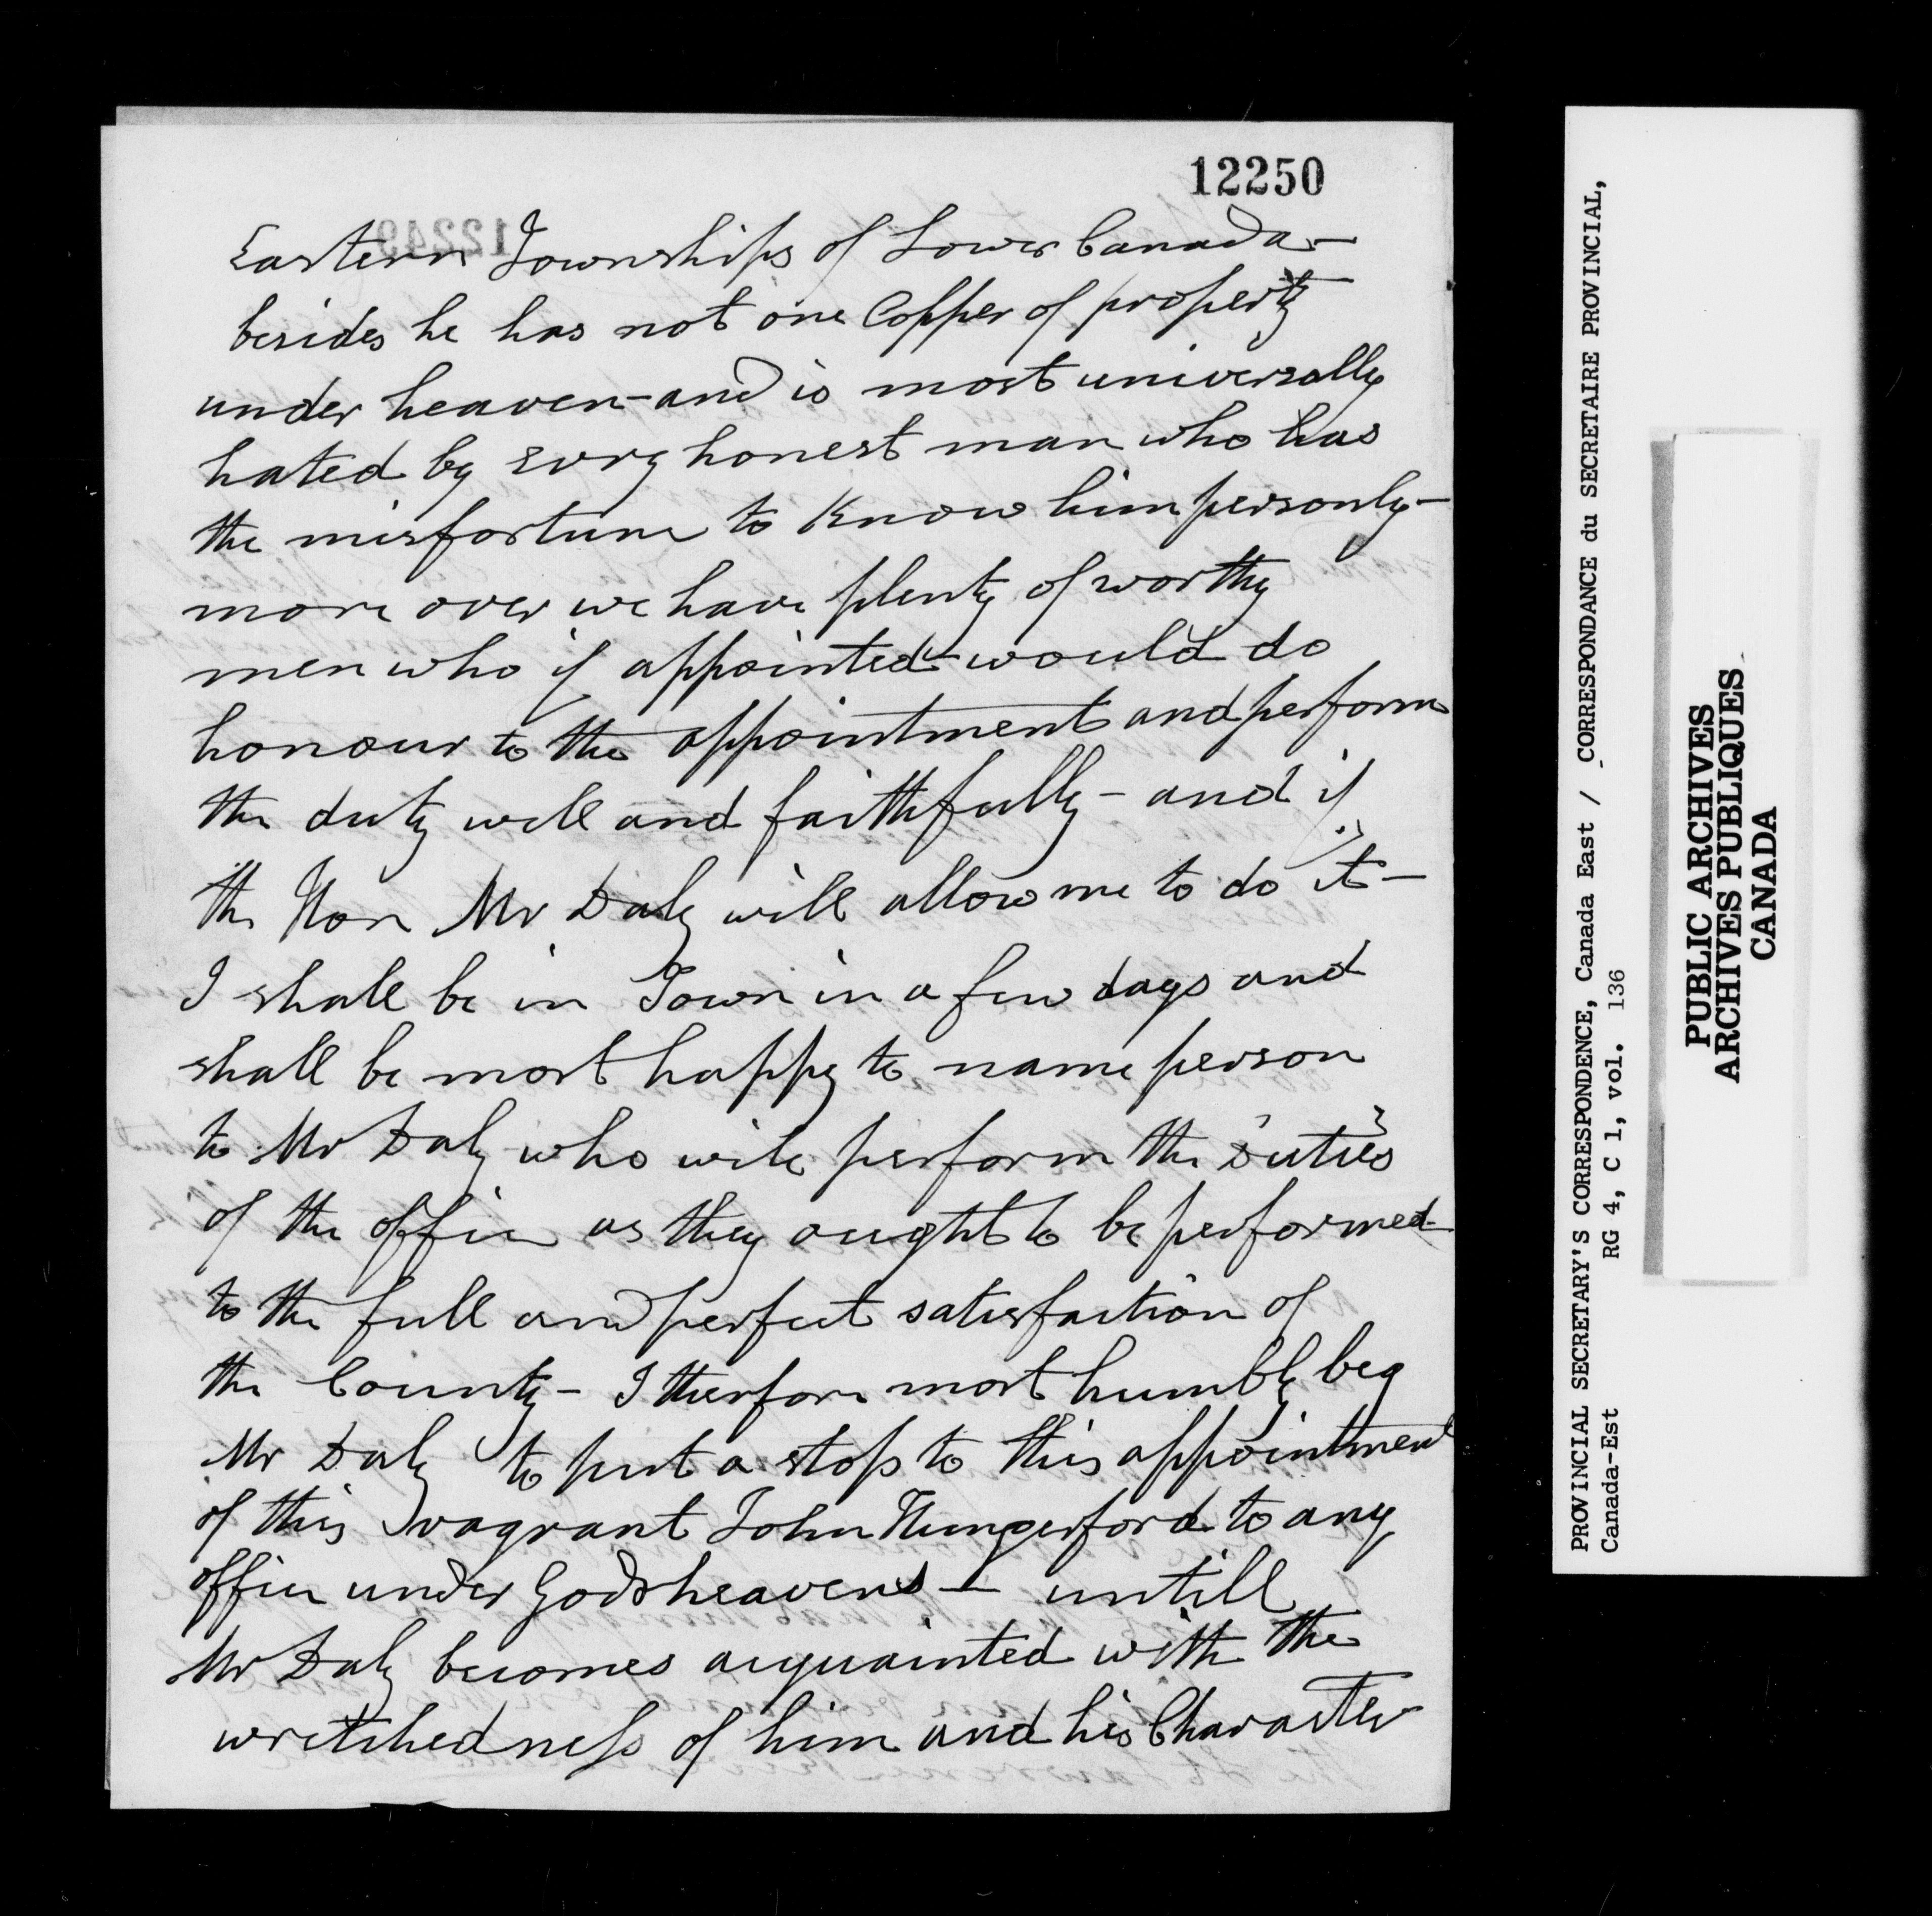 12250
Eastern Townships of Lower Canada —
besides he has not one Copper of property
under heaven - and is most universally
hated by every honest man who has
the misfortune to Know him personly —
more over we have plenty of worthy
men who if appointed would do
honour to the appointment and perform
the duty well and faithfully - and if
the Hon Mr Daly will allow me to do it —
I shall be in Town in a few days and
shall be most happy to name person
to Mr Daly who will perform the Duties
of the office as they ought to be performed
to the full and perfect satisfaction of
the County - I therfore most humbly beg
Mr Daly to put a stop to this appointment
of this vagrant John Hungerford to any
office under Gods heavens — untill
Mr Daly becomes acquainted with the
wretchedness of him and his Character
PROVINCIAL SECRETARY'S CORRESPONDENCE, Canada East / CORRESPONDANCE du SECRETAIRE PROVINCIAL,
Canada-Est RG 4, C 1, vol. 136
PUBLIC ARCHIVES
ARCHIVES PUBLIQUES
CANADA